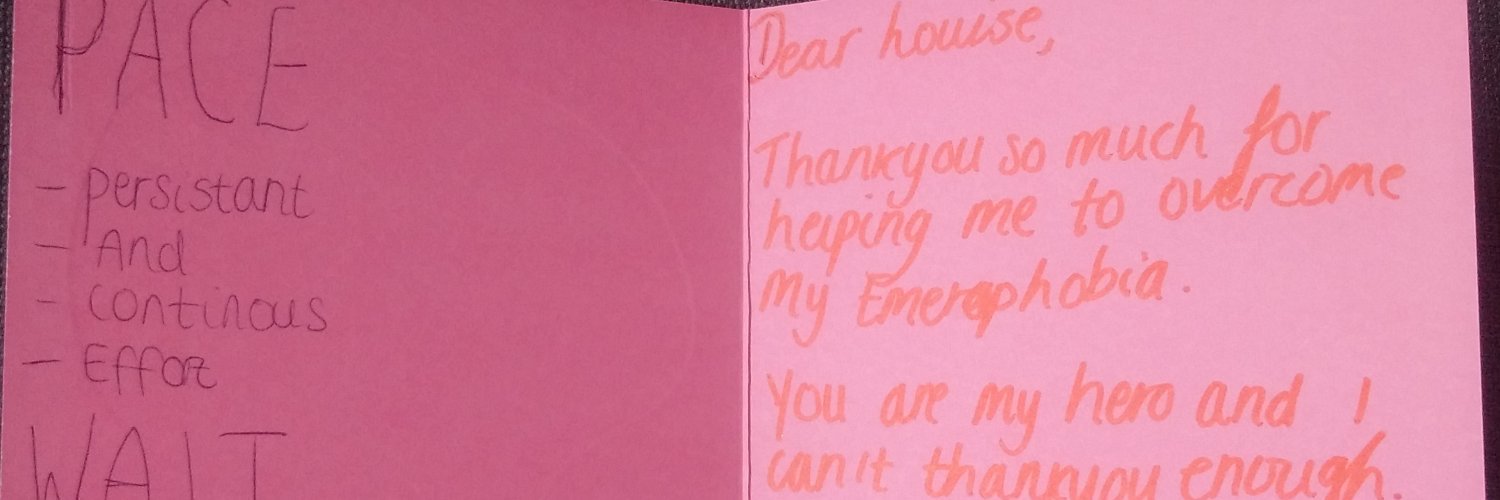 PACE
- persistant
- And
- continous
- Effort
WAIT
Dear Louise,
Thankyou so much for
helping me to overcome
my Emetophobia.
You are my hero and I
can't thankyou enough.